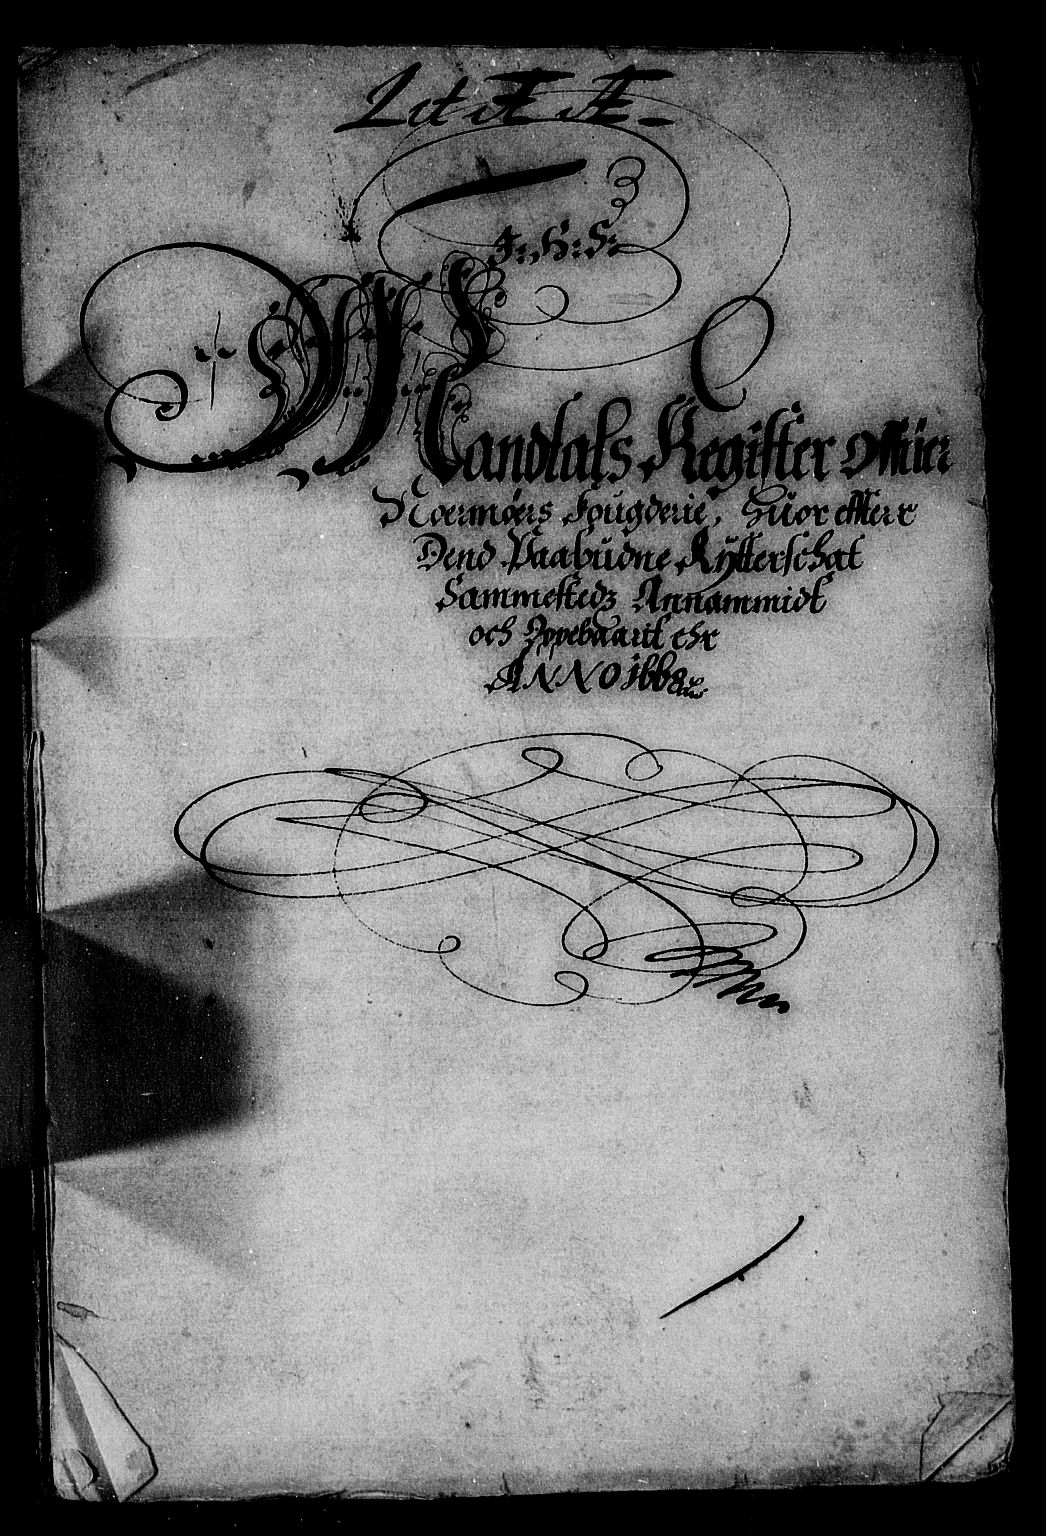 Lit Æ Æ.
J: H: S:
Mandtals Register Offuer
Noermøers Fougderie, Huor effterr
Dend Paabudne Rÿtterschat
Sammestedz Annammidt
och Oppebaarit ehr
ANNO 1668